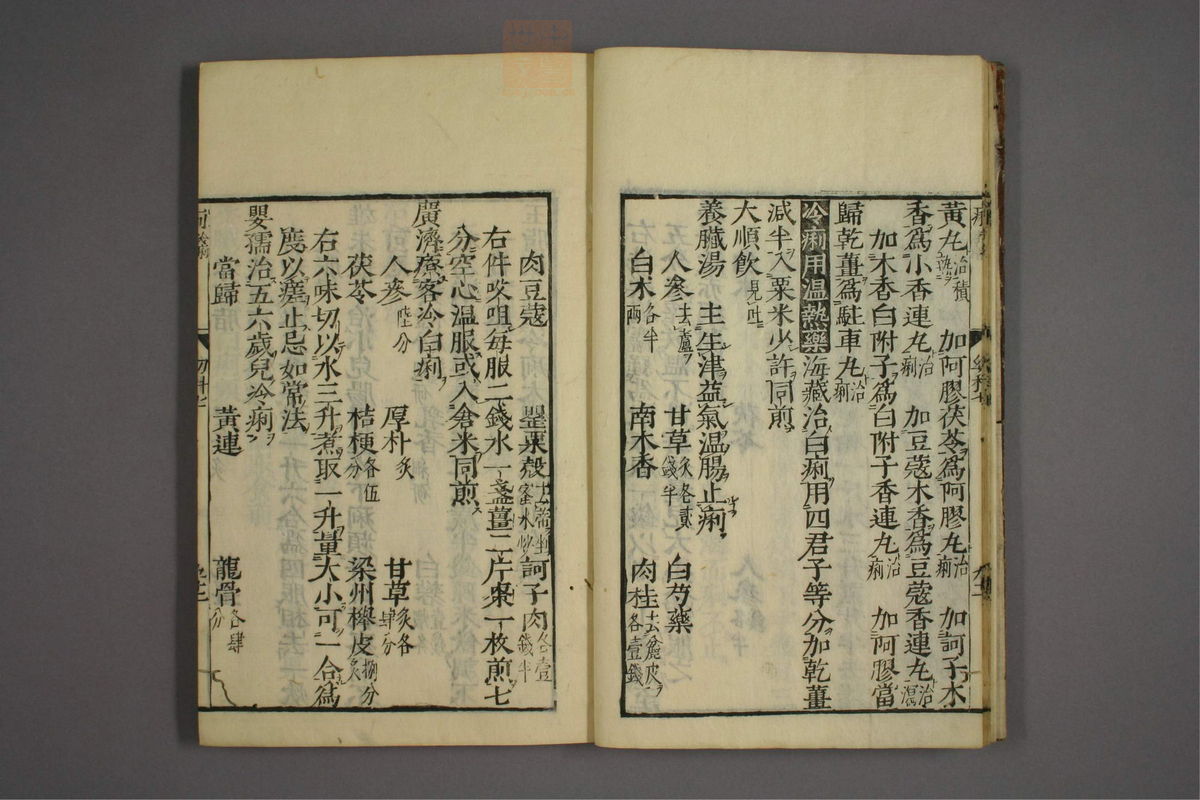 黃丸治積痢 加阿膠茯苓爲阿膠丸治痢 加訶子木
香爲小香連丸治痢 加豆蔻木香爲豆蔻香連丸治瀉
加木香白附子爲白附子香連丸治痢 加阿膠當
歸乾薑爲駐車丸治痢
冷痢用温熱藥海藏治白痢用四君子等分加乾薑
減半入粟米少許同煎
大順飲見吐
養臟湯 主生津益氣温腸止痢
人參去蘆 甘草炙各貳錢半 白芍藥
白朮各半兩 南木香 肉桂去麄皮各壹錢
肉豆蔻 罌粟殼去蒂蜜水炒 訶子肉各壹錢半
右件㕮咀每服二錢水一盞薑二片棗一枚煎七
分空心温服或入倉米同煎
廣濟療客冷白痢
人參陸分 厚朴炙 甘草炙各肆分
茯苓 桔梗各伍分 梁州櫸皮捌分炙
右六味切以水三升煮取一升量大小可一合爲
度以瘥止忌如常法
嬰孺治五六歲兒冷痢
當歸 黃連 龍骨各肆分